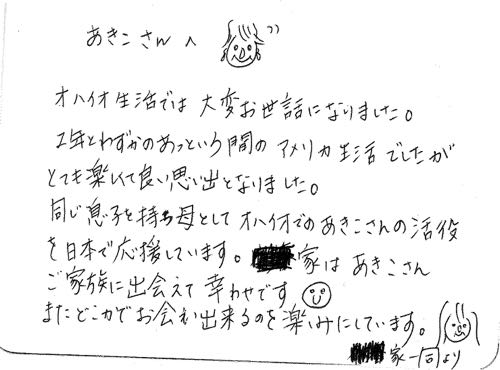 あきこさんへ
オハイオ生活では大変お世話になりました。
2年とわずかのあっという間のアメリカ生活でしたが
とても楽しくて良い思い出となりました。
同じ息子を持つ母としてオハイオでのあきこさんの活役
を日本で応援しています。家はあきこさん
ご家族に出会えて幸わせです
またどこかでお会い出来るのを楽しみにしています。
家一同より